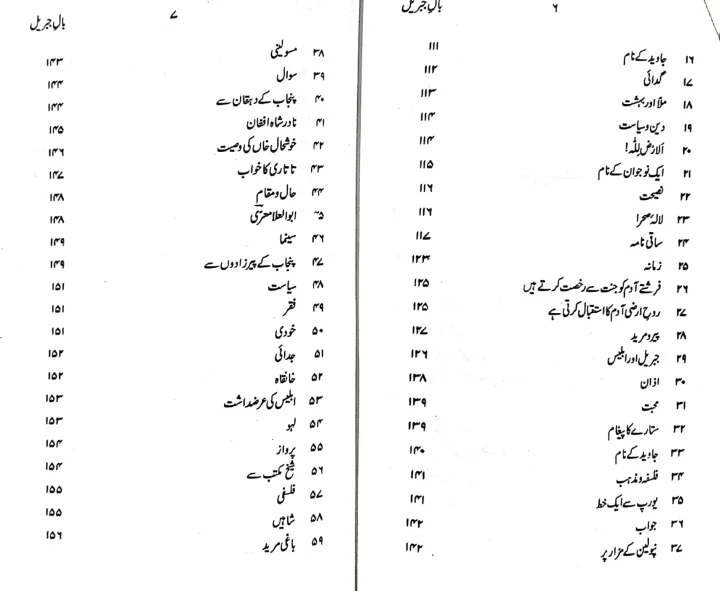 بالِ جبریل ۶
۱۶ جاوید کے نام ۱۱۱
۱۷ گدائی ۱۱۲
۱۸ ملّا اور بہشت ۱۱۳
۱۹ دین و سیاست ۱۱۴
۲۰ اَلْاَرْضُ لِلّٰہ! ۱۱۴
۲۱ ایک نوجوان کے نام ۱۱۵
۲۲ نصیحت ۱۱۶
۲۳ لالۂ صحرا ۱۱۶
۲۴ ساقی نامہ ۱۱۷
۲۵ زمانہ ۱۲۳
۲۶ فرشتے آدم کو جنت سے رخصت کرتے ہیں ۱۲۵
۲۷ روحِ ارضی آدم کا استقبال کرتی ہے ۱۲۵
۲۸ پیر و مرید ۱۲۷
۲۹ جبریل اور ابلیس ۱۳۶
۳۰ اذان ۱۳۸
۳۱ محبت ۱۳۹
۳۲ ستارے کا پیغام ۱۳۹
۳۳ جاوید کے نام ۱۴۰
۳۴ فلسفہ و مذہب ۱۴۱
۳۵ یورپ سے ایک خط ۱۴۱
۳۶ جواب ۱۴۲
۳۷ نپولین کے مزار پر ۱۴۲
۷ بالِ جبریل
۳۸ مسولینی ۱۴۳
۳۹ سوال ۱۴۴
۴۰ پنجاب کے دہقان سے ۱۴۴
۴۱ نادر شاہ افغان ۱۴۵
۴۲ خوشحال خاں کی وصیت ۱۴۶
۴۳ تاتاری کا خواب ۱۴۷
۴۴ حال و مقام ۱۴۸
۴۵ ابوالعلا معریؔ ۱۴۸
۴۶ سینما ۱۴۹
۴۷ پنجاب کے پیرزادوں سے ۱۴۹
۴۸ سیاست ۱۵۱
۴۹ فقر ۱۵۱
۵۰ خودی ۱۵۱
۵۱ جدائی ۱۵۲
۵۲ خانقاہ ۱۵۲
۵۳ ابلیس کی عرضداشت ۱۵۳
۵۴ لہو ۱۵۳
۵۵ پرواز ۱۵۴
۵۶ شیخِ مکتب سے ۱۵۴
۵۷ فلسفی ۱۵۵
۵۸ شاہیں ۱۵۵
۵۹ باغی مرید ۱۵۶